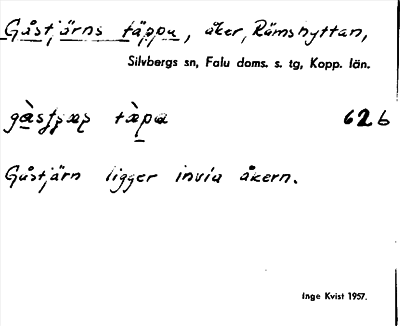 Gåstjärns täppa, åker, Rämshyttan,
Silvbergs sn, Falu doms. s. tg, Kopp. län.
62 b
Gåstjärn ligger invid åkern.
Inge Kvist 1957.